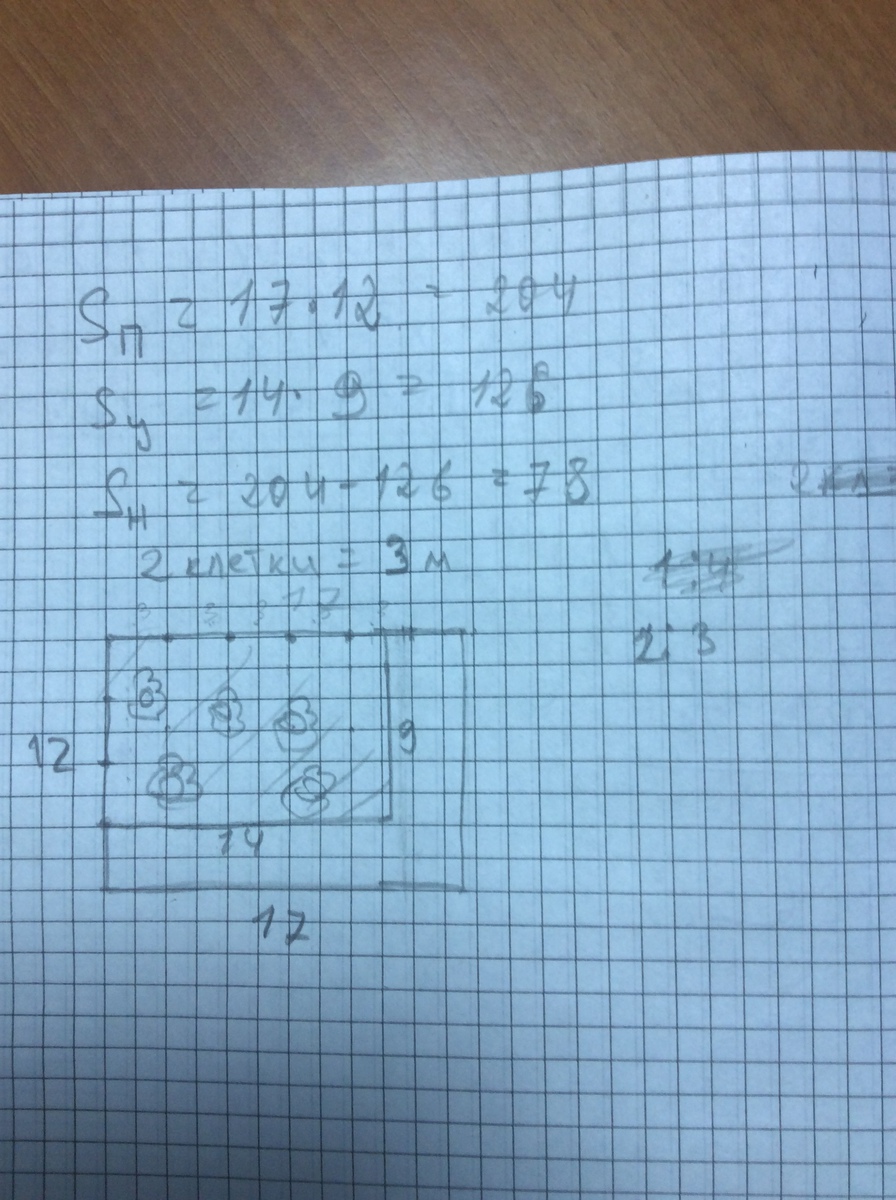 Sп = 17·12 = 204
Sу = 14·9 = 126
Sн = 204-126 = 78
2 клетки = 3 м
2:3
12
9
14
17